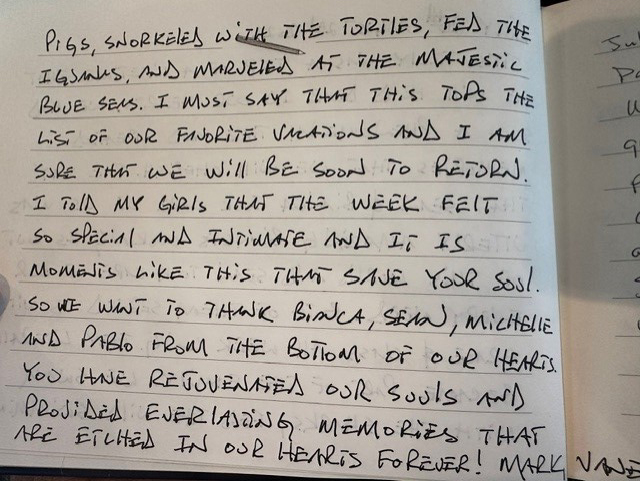 PIGS, SNORKELED WITH THE TORTLES, FED THE
IGUANAS, AND MARVELED AT THE MAJESTIC
BLUE SEAS. I MUST SAY THAT THIS TOPS THE
LIST OF OUR FAVORITE VACATIONS AND I AM
SURE THAT WE WILL BE SOON TO RETURN.
I TOLD MY GIRLS THAT THE WEEK FELT
SO SPECIAL AND INTIMATE AND IT IS
MOMENTS LIKE THIS THAT SAVE YOUR SOUL.
SO WE WANT TO THANK BIANCA, SEAN, MICHELLE
AND PABLO FROM THE BOTTOM OF OUR HEARTS.
YOU HAVE REJUVENATED OUR SOULS AND
PROVIDED EVERLASTING MEMORIES THAT
ARE ETCHED IN OUR HEARTS FOREVER! MARK